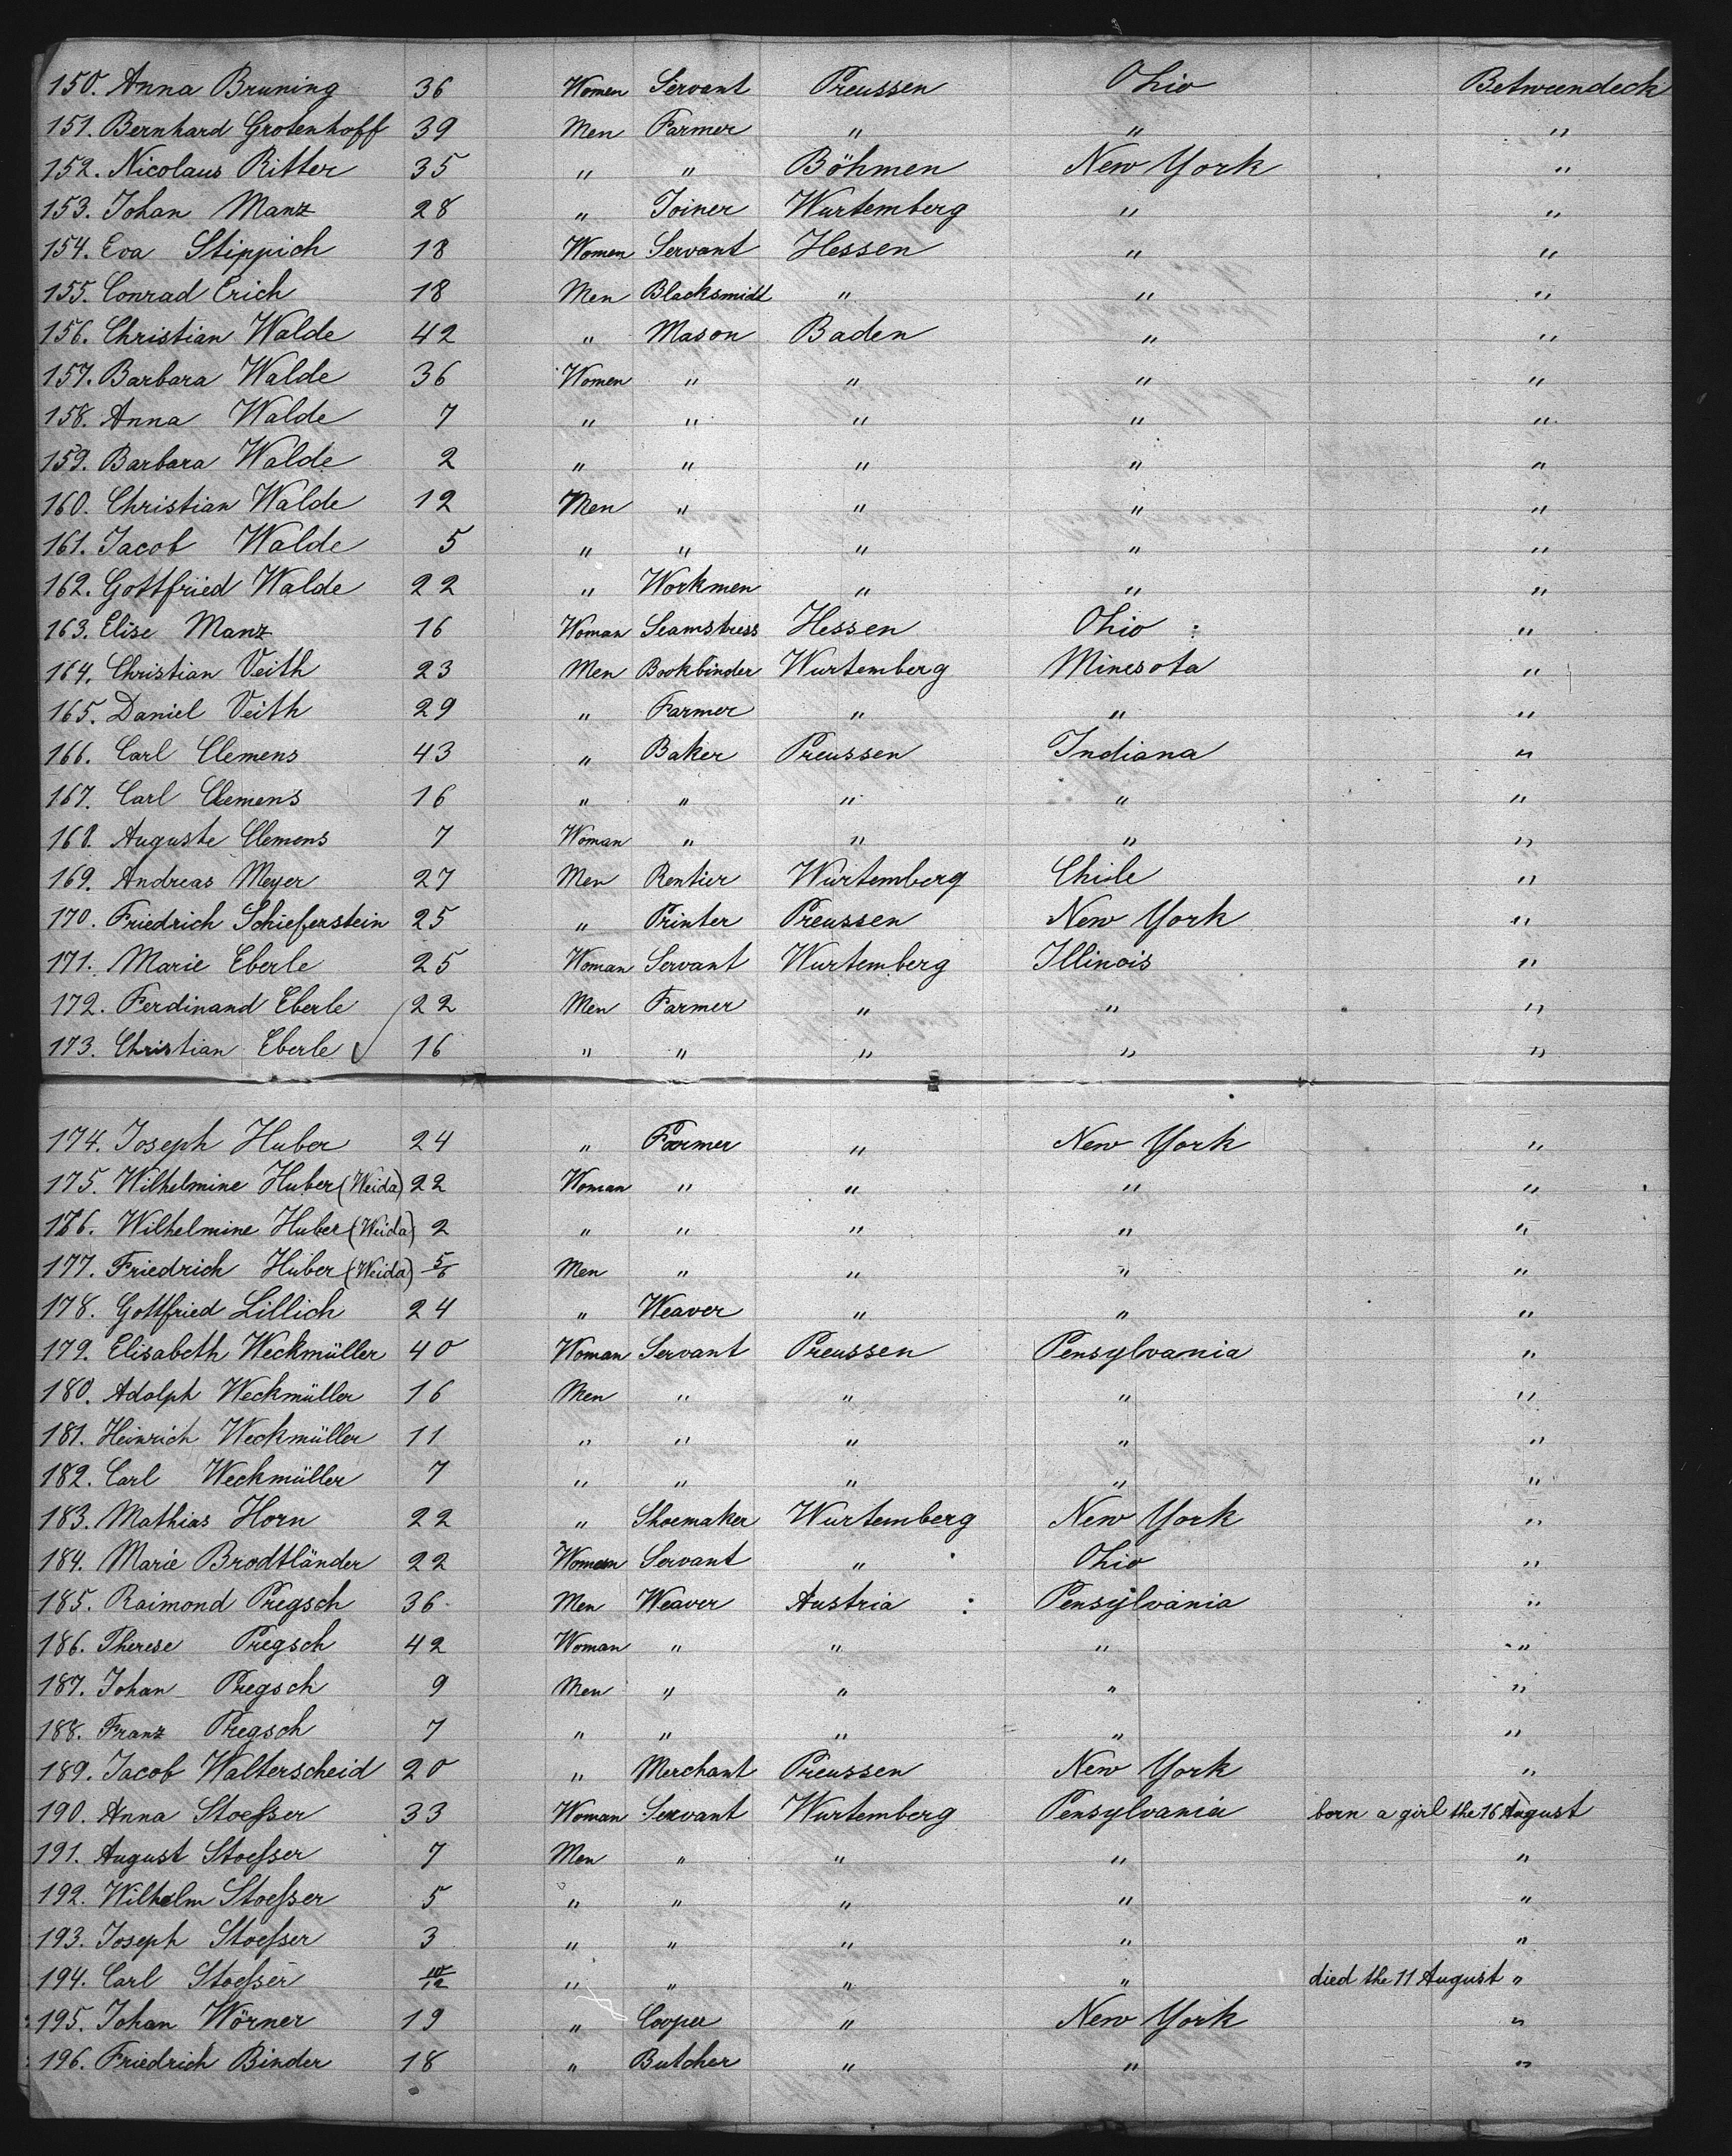 150. Anna Bruning 36 Women Servant Preussen Ohio Betweendeck
151. Bernhard Grotenhoff 39 Men Farmer " " "
152. Nicolaus Ritter 35 " " Böhmen New York "
153. Johan Manz 28 " Joiner Wurtemberg " "
154. Eva Stippich 18 Women Servant Hessen " "
155. Conrad Erich 18 Men Blacksmidt " " "
156. Christian Walde 42 " Mason Baden " "
157. Barbara Walde 36 Women " " " "
158. Anna Walde 7 " " " " "
159. Barbara Walde 2 " " " " "
160. Christian Walde 12 Men " " " "
161. Jacob Walde 5 " " " " "
162. Gottfried Walde 22 " Workmen " " "
163. Elise Manz 16 Woman Seamstress Hessen Ohio "
164. Christian Veith 23 Men Bookbinder Wurtemberg Minesota "
165. Daniel Veith 29 " Farmer " " "
166. Carl Clemens 43 " Baker Preussen Indiana "
167. Carl Clemens 16 " " " " "
168. Auguste Clemens 7 Woman " " " "
169. Andreas Meyer 27 Men Rentier Wurtemberg Chile "
170. Friedrich Schieferstein 25 " Printer Preussen New York "
171. Marie Eberle 25 Woman Servant Wurtemberg Illinois "
172. Ferdinand Eberle 22 Men Farmer " " "
173. Christian Eberle 16 " " " " "
174. Joseph Huber 24 " Farmer " New York "
175. Wilhelmine Huber (Weida) 22 Woman " " " "
176. Wilhelmine Huber (Weida) 2 " " " " "
177. Friedrich Huber (Weida) 5/6 Men " " " "
178. Gottfried Lillich 24 " Weaver " " "
179. Elisabeth Weckmüller 40 Woman Servant Preussen Pensylvania "
180. Adolph Weckmüller 16 Men " " " "
181. Heinrich Weckmüller 11 " " " " "
182. Carl Weckmüller 7 " " " " "
183. Mathias Horn 22 " Shoemaker Wurtemberg New York "
184. Marie Brodtländer 22 Women Servant " Ohio "
185. Raimond Pregsch 36 Men Weaver Austria : Pensylvania "
186. Therese Pregsch 42 Woman " " " "
187. Johan Pregsch 9 Men " " " "
188. Franz Pregsch 7 " " " " "
189. Jacob Walterscheid 20 " Merchant Preussen New York "
190. Anna Stoesser 33 Woman Servant Wurtemberg Pensylvania born a girl the 16 August
191. August Stoesser 7 Men " " " "
192. Wilhelm Stoesser 5 " " " " "
193. Joseph Stoesser 3 " " " " "
194. Carl Stoesser 10/12 " " " " died the 11 August "
195. Johan Wörner 19 " Cooper " New York "
196. Friedrich Binder 18 " Butcher " " "